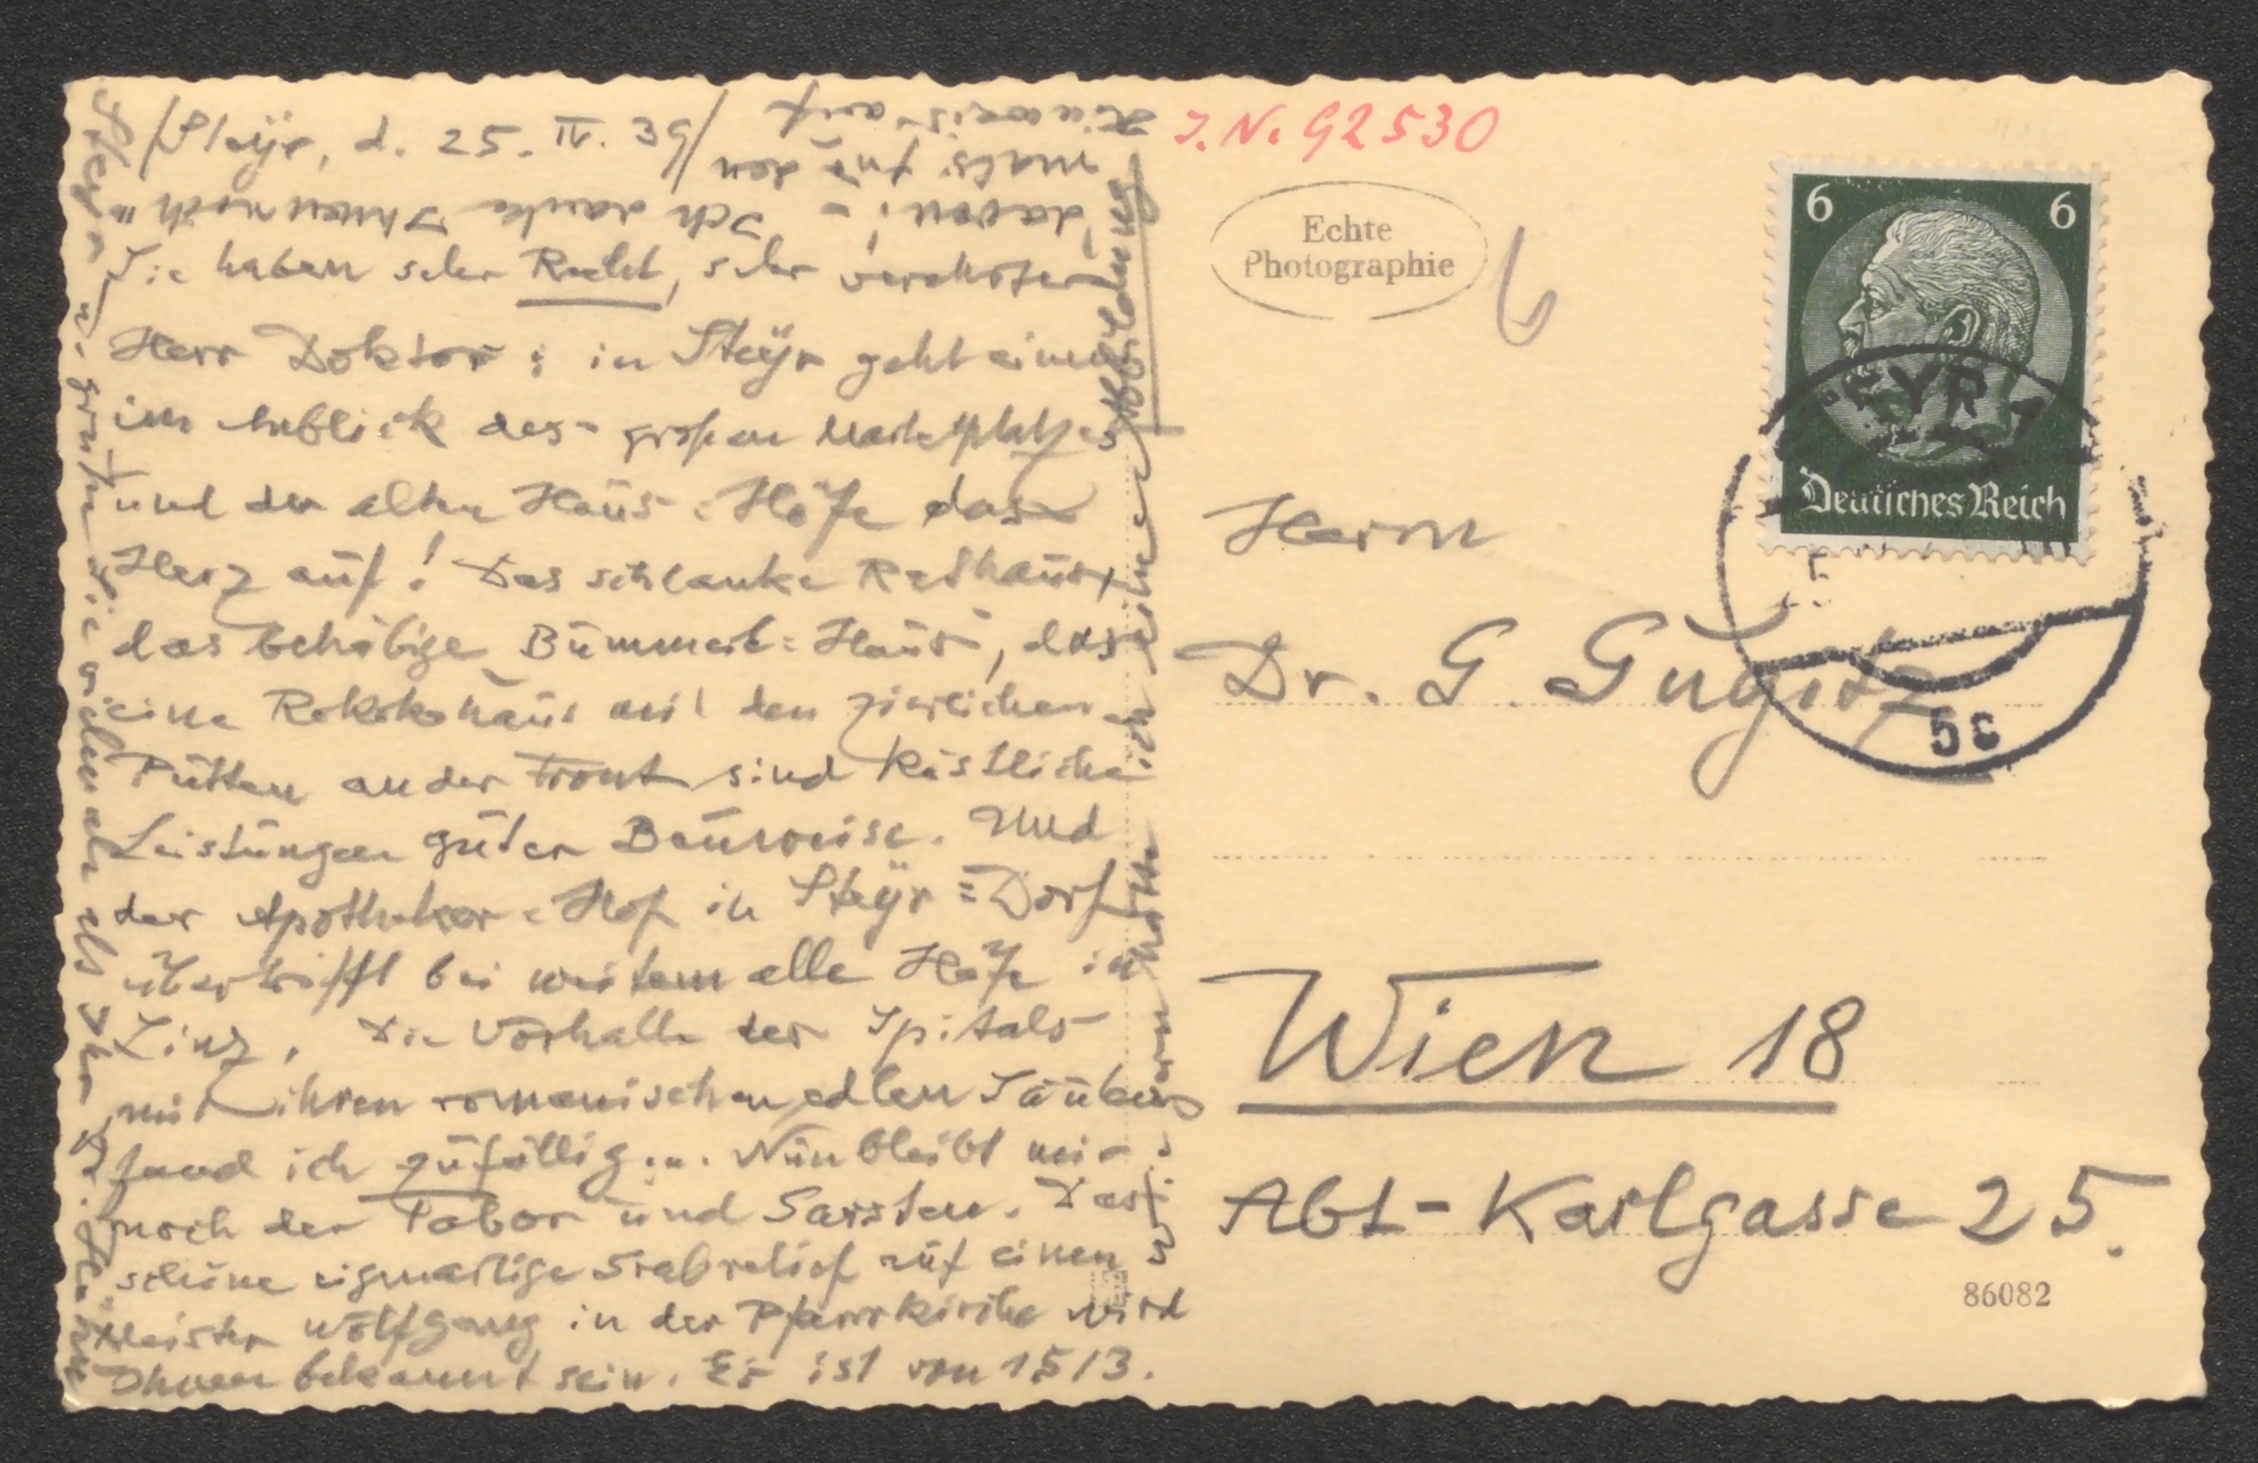 /Steÿr, d. 25. IV. 39/
Sie haben sehr Recht, sehr verehrter
Herr Doktor: in Steÿr geht einem
im Anblick des großen Marktplatzes
und der alten Haus-Höfe das
Herz auf! Das schlanke Rathaus,
das behäbige Bummerl-Haus, das
eine Rokokohaus mit den zierlichen
Putten an der Front sind köstliche
Leistungen guter Bauweise. Und
der Apotheker-Hof in Steÿr-Dorf
übertrifft bei weitem alle Höfe in
Linz. Die Vorhalle des Spitals
mit ihren romanischen edlen Säulen
fand ich zufällig... Nun bleibt mir
noch der Tabor und Garsten. Das
schöne eigenartige Grabrelief auf einen
Meister Wolfgang in der Pfarrkirche wird
Ihnen bekannt sein. Es ist von 1513.
in einer Abbildung
davon! - Ich danke Ihnen noch-
mals für den
Hinweis auf
Steyr u. grüße Sie
J.N. 92530
Echte
Photographie
6
6 6
Deutsches Reich
EYR 1
5c
Herrn
Dr. G. Gugitz
Wien 18
Abt-Karlgasse 25.
86082